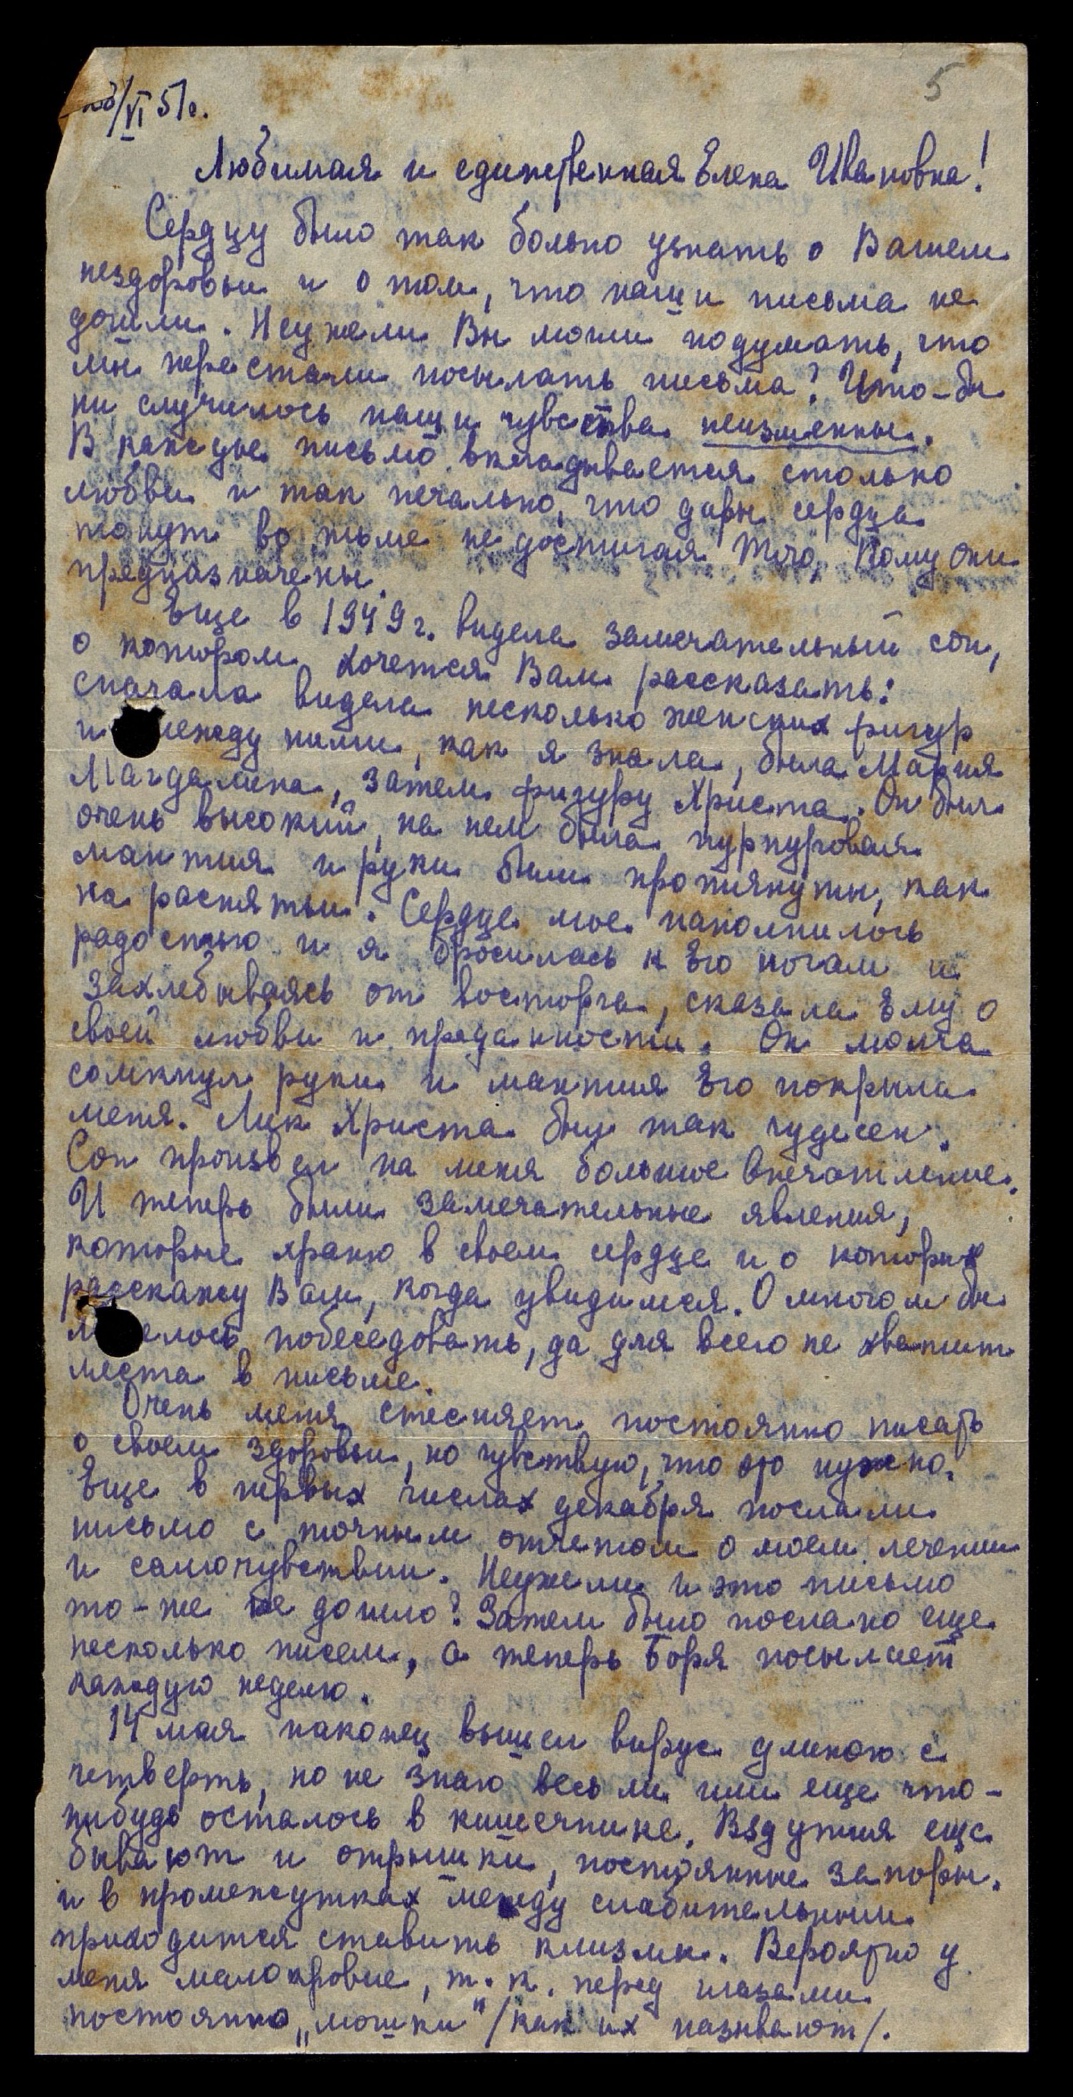 5
/VI 51г.
Любимая и единственная Елена Ивановна!
Сердцу было так больно узнать о Вашем
нездоровьи и о том, что наши письма не
дошли. Неужели Вы могли подумать, что
мы перестали посылать письма? Что-бы
ни случилось наши чувства неизменны.
В каждое письмо вкладывается столько
любви и так печально, что дары сердца
тонут во тьме не достигая Того, Кому они
предназначены.
Еще в 1949 г. видела замечательный сон,
о котором хочется Вам рассказать:
сначала видела несколько женских фигур
и между ними, как я знала, была Мария
Магдалина, затем фигуру Христа. Он был
очень высокий, на нем была пурпуровая
мантия и руки были протянуты, как
на распятьи. Сердце мое наполнилось
радостью и я бросилась к Его ногам и
захлебываясь от восторга, сказала Ему о
своей любви и преданности. Он молча
сомкнул руки и мантия Его покрыла
меня. Лик Христа был так чудесен.
Сон произвел на меня большое впечатление.
И теперь были замечательные явления,
которые храню в своем сердце и о которых
расскажу Вам, когда увидимся. О многом бы
хотелось побеседовать, да для всего не хватит
места в письме.
Очень меня стесняет постоянно писать
о своем здоровьи, но чувствую, что это нужно.
Еще в первых числах декабря послали
письмо с точным отчетом о моем лечении
и самочувствии. Неужели и это письмо
то-же не дошло? Затем было послано еще
несколько писем, а теперь Боря посылает
каждую неделю.
14 мая наконец вышел вирус длиною с
четверть, но не знаю весь ли или еще что-
нибудь осталось в кишечнике. Вздутия еще
бывают и отрыжки, постоянные запоры.
и в промежутках между слабительными
приходится ставить клизмы. Вероятно у
меня малокровие, т.к. перед глазами
постоянно „мошки" /как их называют/.